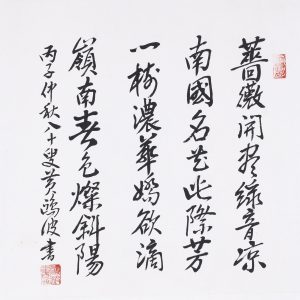 薔薇開盡綠音凉
南國名花此際芳
一樹濃華嬌欲滴
嶺南春色燦斜陽
丙子仲秋八十叟黄鴻波書